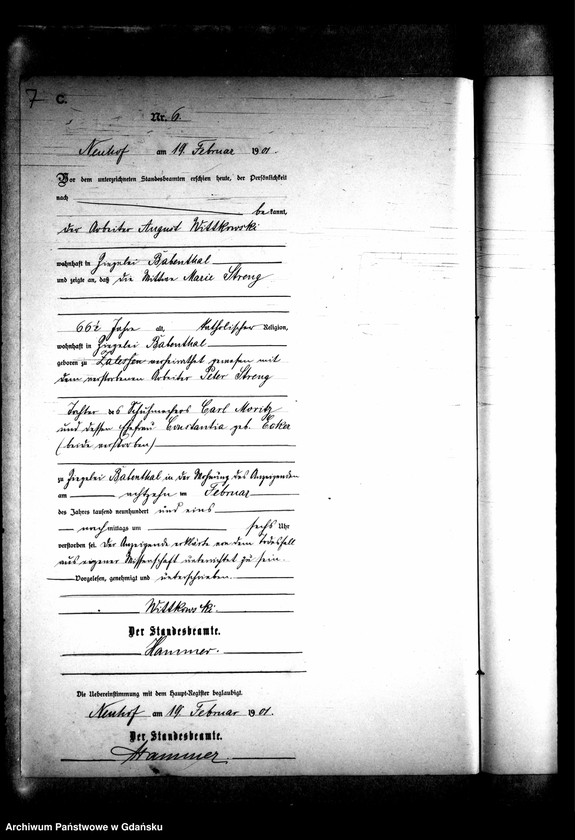 7 C.
Nr. 6.
Neuhof am 19. Februar 1901.
Vor dem unterzeichneten Standesbeamten erschien heute, der Persönlichkeit
nach
bekannt,
der Arbeiter August Wittkowski
wohnhaft in Ziegelei Babenthal
und zeigte an, daß die Wittwe Marie Streng
66½ Jahre alt, katholischer Religion,
wohnhaft in Ziegelei Babenthal
geboren zu verheirathet gewesen mit
dem verstorbenen Arbeiter Peter Streng
Tochter des Schuhmachers Carl Moritz
und dessen Ehefrau Constantia geb.
(beide verstorben)
zu Ziegelei Babenthal in der Wohnung des Anzeigenden
am achtzehn ten Februar
des Jahres tausend neunhundert und eins
nachmittags um sechs Uhr
verstorben sei. Der Anzeigende erklärte von dem Todesfall
aus eigener Wissenschaft unterrichtet zu sein.
Vorgelesen, genehmigt und unterschrieben.
Wittkowski.
Der Standesbeamte.
Hammer.
Die Uebereinstimmung mit dem Haupt-Register beglaubigt.
Neuhof am 19. Februar 1901.
Der Standesbeamte.
Hammer.
Archiwum Państwowe w Gdańsku